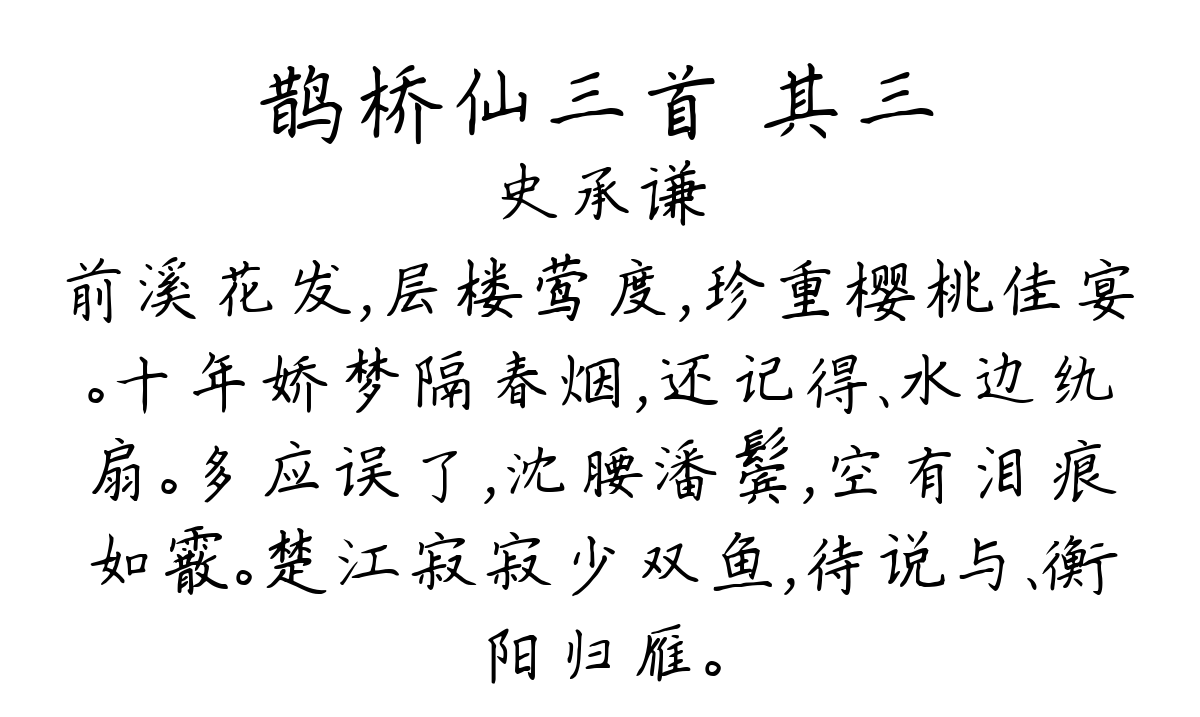 鹊桥仙三首 其三
史承谦
前溪花发,层楼莺度,珍重樱桃佳宴
。十年娇梦隔春烟,还记得、水边纨
扇。多应误了,沈腰潘鬓,空有泪痕
如霰。楚江寂寂少双鱼,待说与、衡
阳归雁。